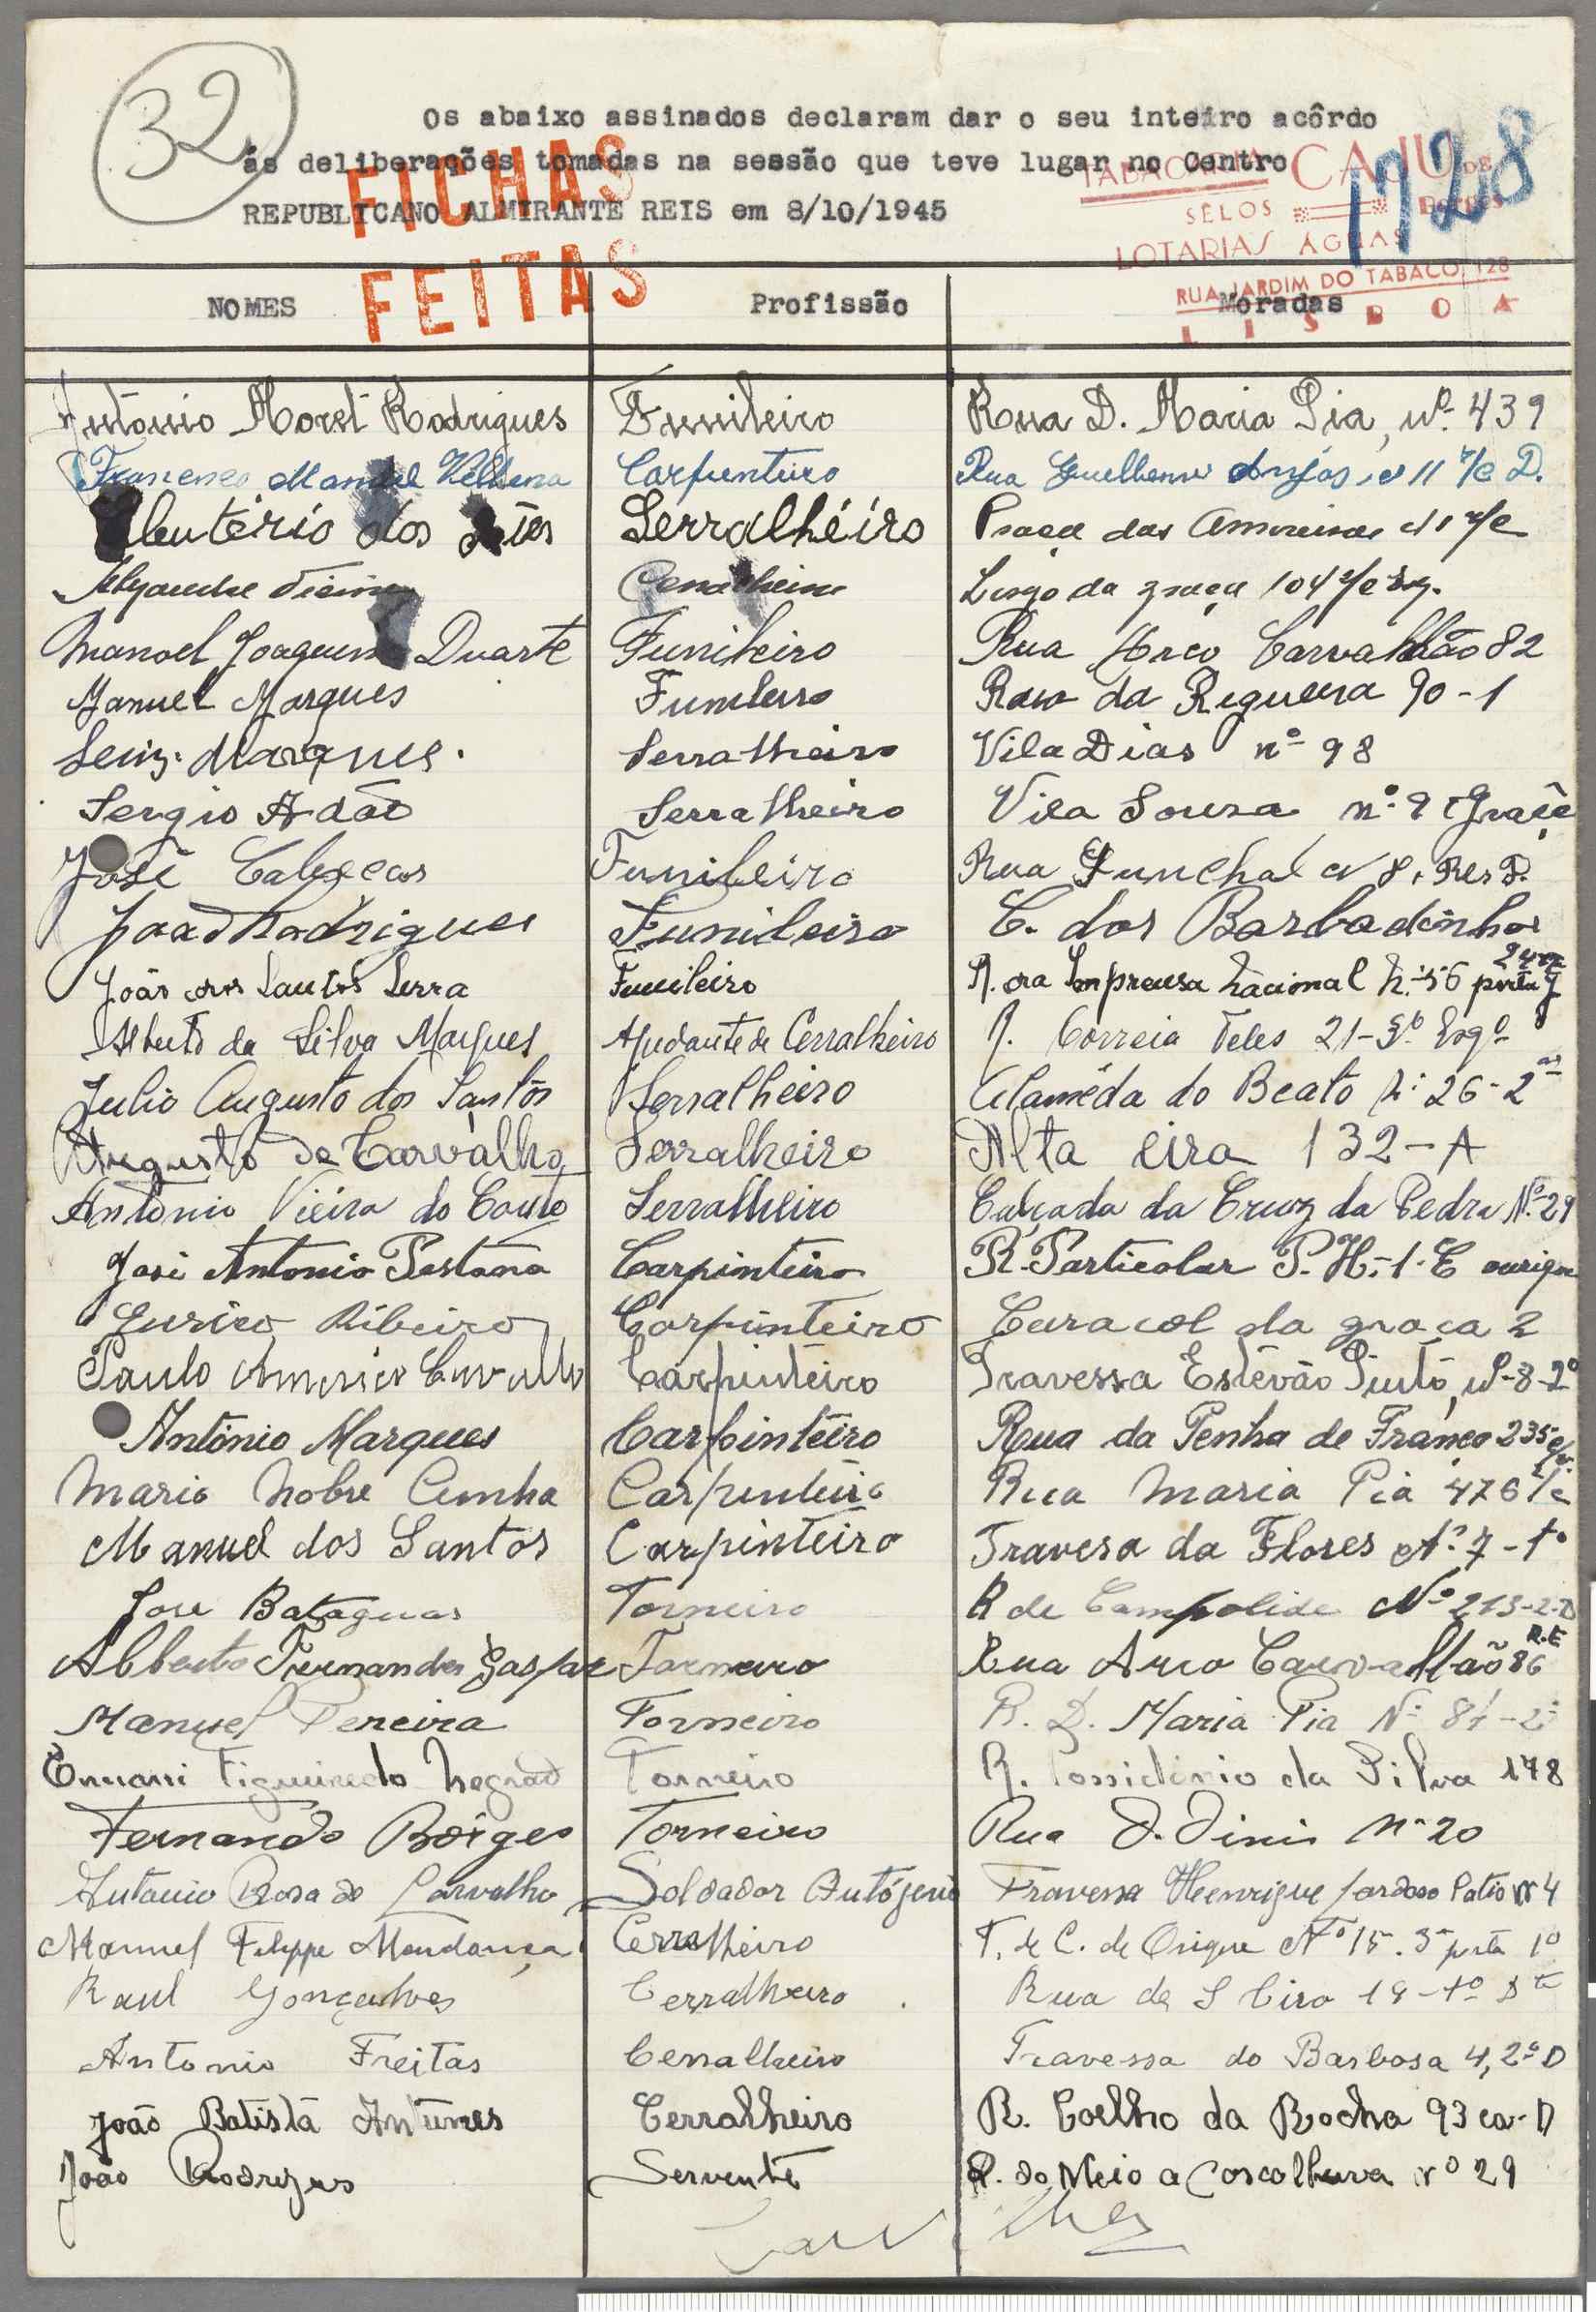 32
Os abaixo assinados declaram dar o seu inteiro acôrdo
ás deliberações tomadas na sessão que teve lugar no Centro
REPUBLICANO ALMIRANTE REIS em 8/10/1945
FICHAS
FEITAS
1728
TABACARIA CAJU DE
SELOS
LOTARIAS ÁGUAS
RUA JARDIM DO TABACO, 128
LISBOA
NOMES Profissão Moradas
António Moret Rodrigues Funileiro Rua D. Maria Pia, nº 439
Francisco Manuel Carpinteiro Rua Guilherme Anjos, nº 11 r/c D.
Eleutério dos Serralhéiro Praça das Amoreiras r/c
Largo da graça 104 r/c
Manoel Joaquim Duarte Funileiro Rua Arco Carvalhão 82
Manuel Marques Funileiro da Regueira 90-1
Luiz Marques. Serralheiro Vila Dias nº 98
Sergio Adão Serralheiro Vila Sousa nº 9 Graça
José Cabeças Funileiro Rua Funchal nº 8
João Rodrigues Funileiro C. dos Barbadinhos
João dos Santos Serra Funileiro R. da Imprensa Nacional porta
Alberto da Silva Marques Ajudante de Cerralheiro R. Correia Teles 21-3º Esqº
Julio Augusto dos Santos Serralheiro Alaméda do Beato 26-2
Augusto de Carvalho Serralheiro Alta eira 132-A
António Vieira do Couto Serralheiro Calçada da Cruz da Pedra Nº 29
José Antonio Pestana Carpinteiro R. Particular ourique
Eurico Ribeiro Carpinteiro Caracol da graça 2
Paulo Americo Carvalho Carpinteiro Travessa Estêvão Pinto, nº 8-2º
António Marques Carpinteiro Rua da Penha de França 235
Mario Nobre Cunha Carpinteiro Rua Maria Pia 476 r/c
Manuel dos Santos Carpinteiro Travesa da Flores Nº 7-1º
José Bataguas Torneiro R de Campolide Nº 213-2-D
Alberto Fernandes Gaspar Torneiro Rua Arco Carvalhão 86 R.E
Manuel Pereira Torneiro R. D. Maria Pia Nº 81-2º
Ernani Figueiredo Negrão Torneiro R. Possidónio da Silva 178
Fernando Borges Torneiro Rua D. Dinis Nº 20
António Rosa de Carvalho Soldador Autógenio Travessa Henrique Cardoso Patio Nº 4
Manuel Filippe Mendança Cerralheiro T. de C. de Orique Nº 15. 3ª porta 1º
Raul Gonçalves Cerralheiro Rua de S Ciro 19-1º Dtº
Antonio Freitas Cerralheiro Travessa do Barbosa 4, 2º D
João Batista Antunes Cerralheiro R. Coelho da Rocha 93 D
João Rodrigues Servente R. do Meio a nº 29